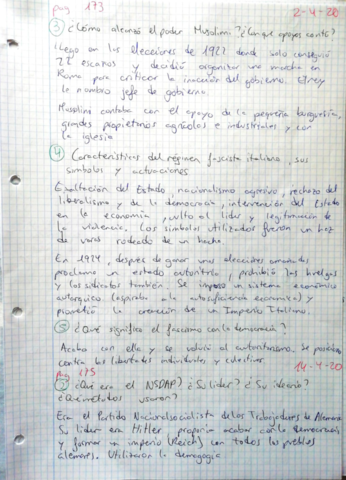 pag 173
2-4-20
③ ¿Cómo alcanzó el poder Musolini? ¿Con que apoyos contó?
Llego en las elecciones de 1922 donde solo consiguió
22 escaños y decidió organizar una marcha en
Roma para criticar la inacción del gobierno. El rey
le nombro jefe de gobierno.
Musolini contaba con el apoyo de la pequeña burguesía,
grandes propietarios agrícolas e industriales y con
la iglesia
④ Características del régimen fascista italiano, sus
simbolos y actuaciones
Exaltación del Estado, nacionalismo agresivo, rechazo del
liberalismo y de la democracia, intervención del Estado
en la economía, culto al lider y legitimación de
la violencia. Los simbolos utilizados fueron un haz
de varas rodeado de un hacha.
En 1924, después de ganar unas elecciones amañadas
proclamo un estado autoritrio, prohibió las huelgas
y los sidicatos tambien. Se impuso un sistema económico
autárquico (aspiraba a la autosuficiencia economica) y
prometió la creación de un Imperio Italiano.
⑤ ¿Qué significa el fascismo con la democracia?
Acaba con ella y se volvió al autoritarismo. Se posiciona
contra las libertades individuales y colectivas
14-4-20
pag 175
② ¿Qué era el NSDAP? ¿Su lider? ¿Su ideario?
¿Qué métodos usaron?
Era el Partido Nacionalsocialista de los Trabajadores de Alemania
Su lider era Hitler, proponia acabar con la democracia
y formar un imperio (Reich) con todos los pueblos
alemanes. Utilizaron la demagogia